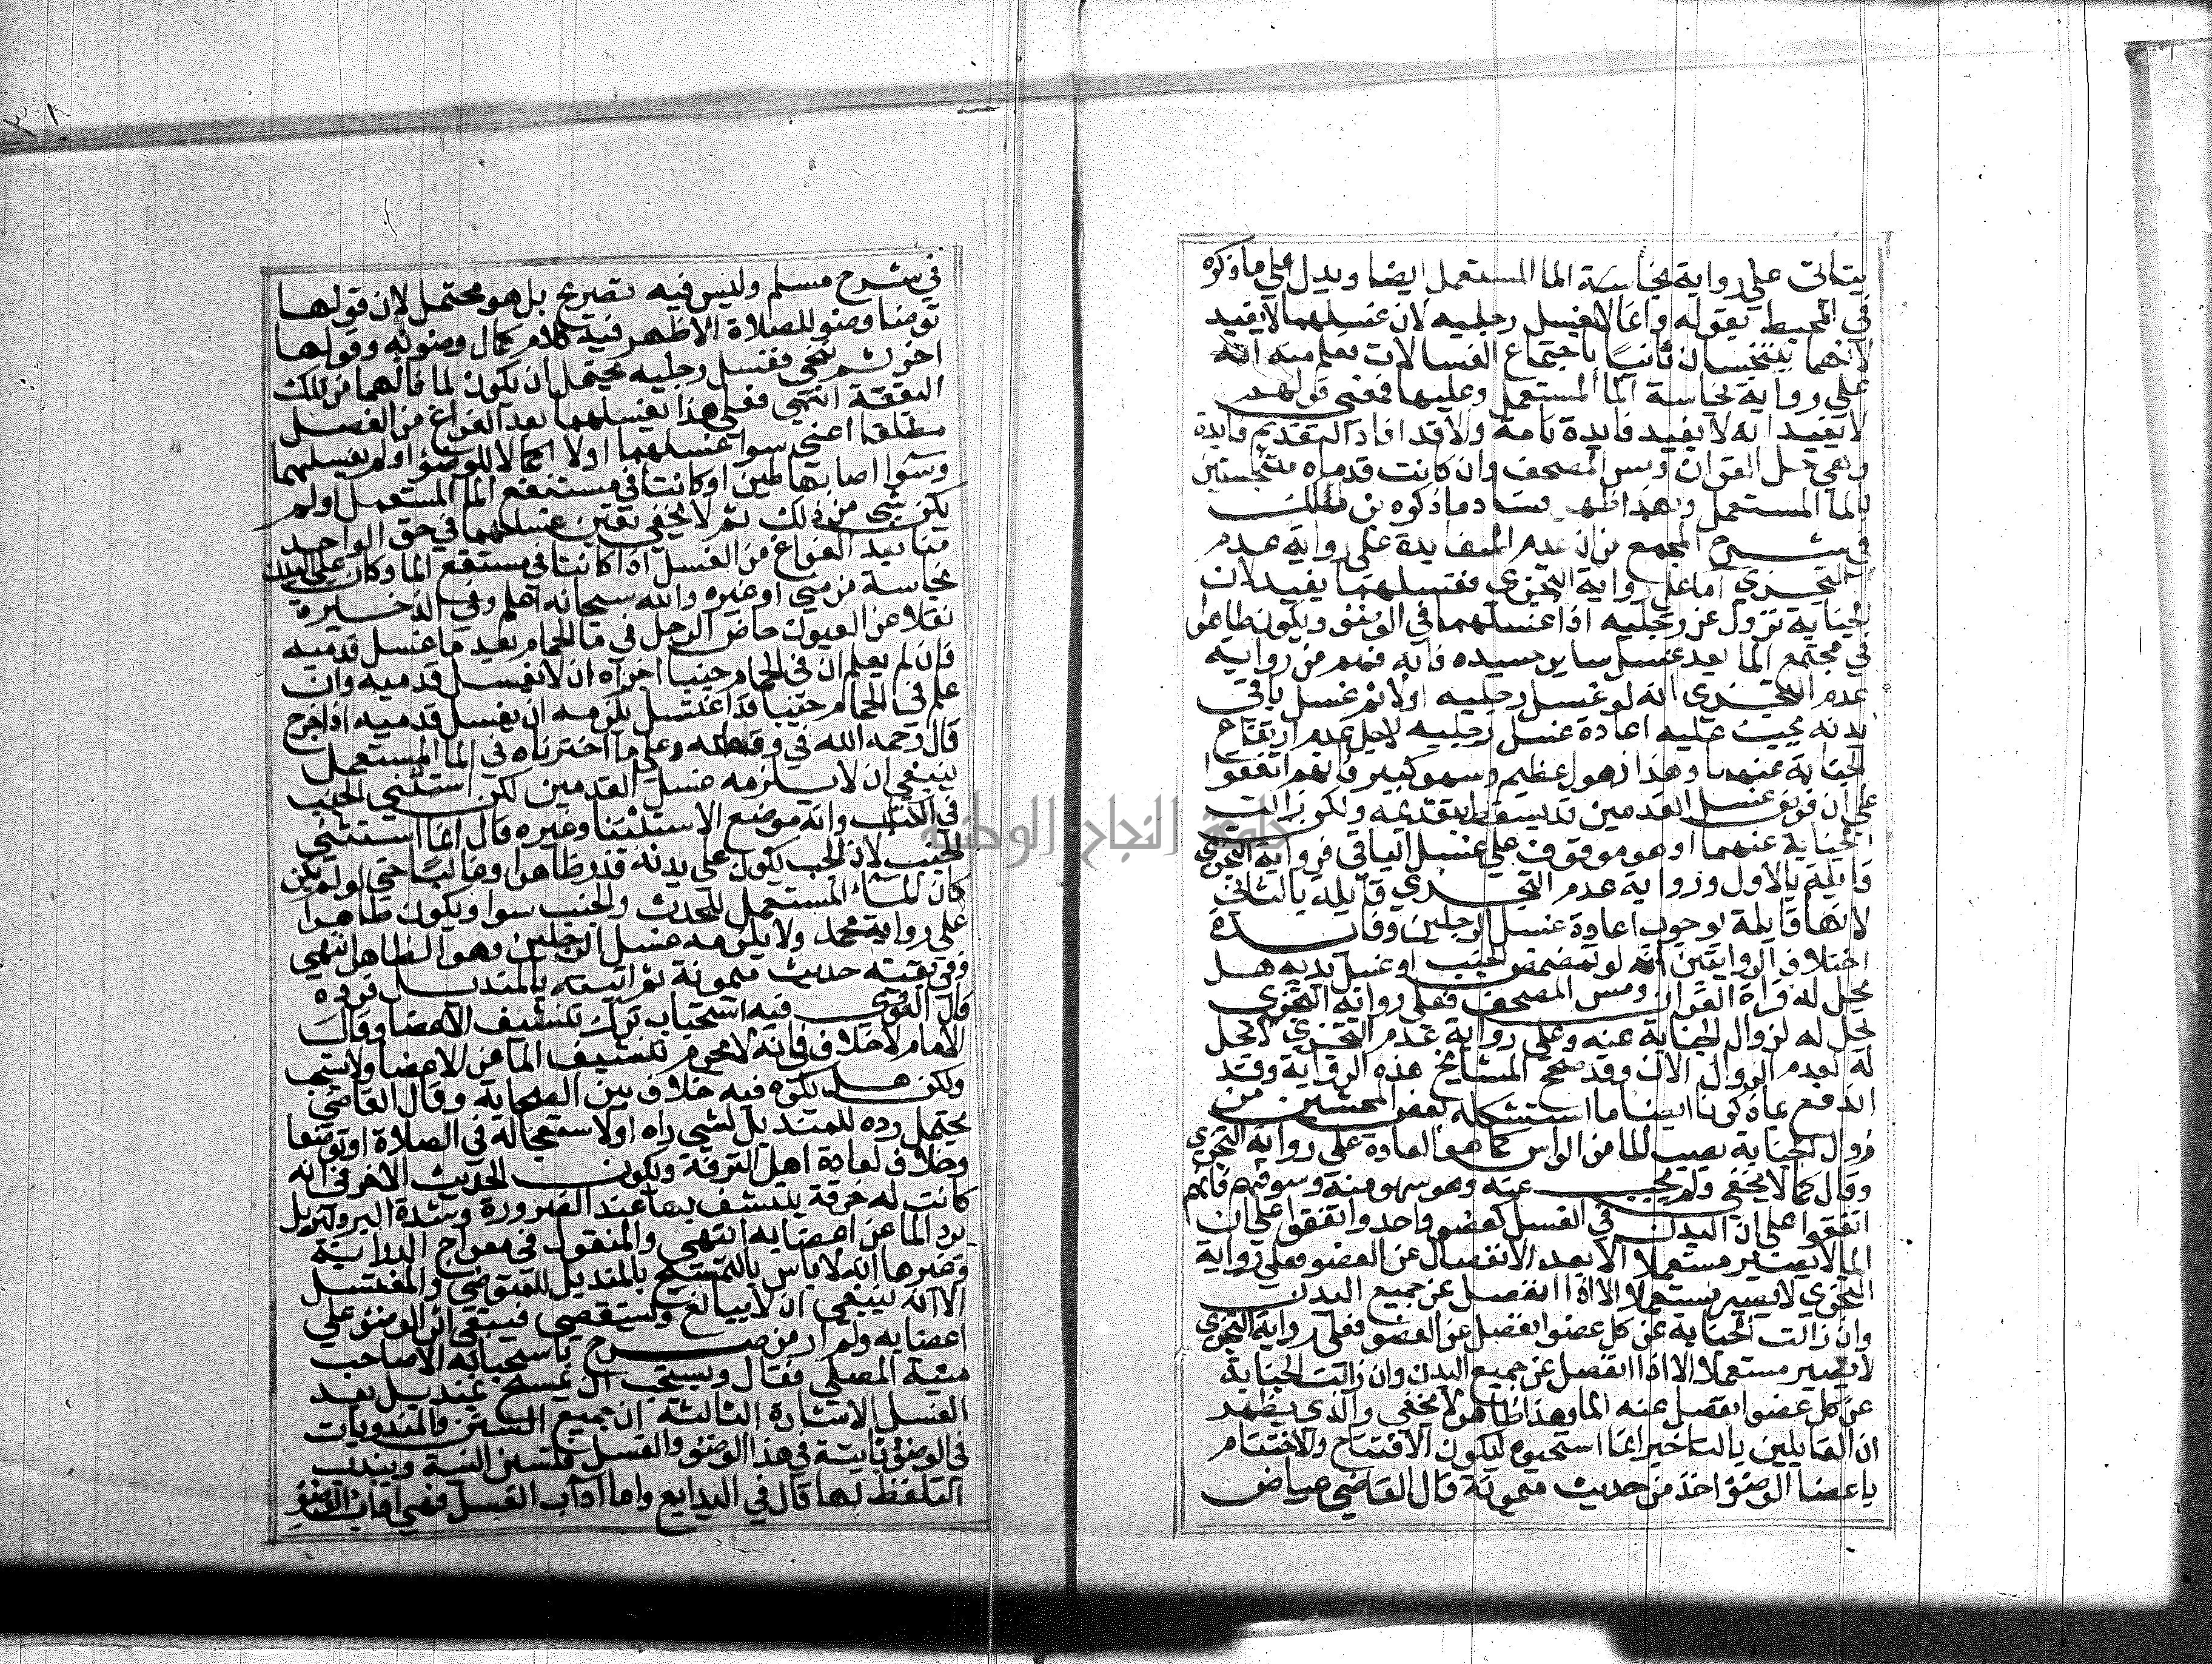 يتاتى على رواية نجاسة الما المستعمل ايضا ويدل على ما ذكره
في المحيط بقوله وانما لا يغسل رجليه لان غسلهما لا يفيد
لانهما يتنجسان ثانيا باجتماع الغسالات يعلم منه انه
على رواية نجاسة الما المستعمل وعليها فمعنى قولهم
لا يفيد انه لا يفيد فايدة تامة والا قد افاد التقديم فايدة
وهي حل القران ومس المصحف وان كانت قدماه متنجستين
بالما المستعمل وبهذا ظهر فساد ما ذكره بن ملك
في شرح المجمع من ان عدم الفايدة على رواية عدم
التجزي اما على رواية التجزي فغسلهما يفيد لان
الجنابة تزول عن رجليه اذا غسلهما في الوضؤ ويكون طاهرا
في مجتمع الما بعد غسل ساير جسده فانه فهم من رواية
عدم التجزي انه لو غسل رجليه اولا ثم غسل باقي
بدنه يجب عليه اعادة غسل رجليه لاجل عدم ارتفاع
الجنابة عنهما وهذا ذهول عظيم وسهو كبير فانهم اتفقوا
على ان فرض غسل القدمين قد يسقط بتقديمه ولكن زالت
الجنابة عنهما او هو موقوف على غسل الباقي فرواية التجزي
قايلة بالاول وزواية عدم التجزي قايلة بالثاني
لانها قايلة بوجوب اعادة غسل الرجلين وفايدة
اختلاف الروايتين انه لو تمضمض الجنب او غسل يديه هل
يحل له قراة القران ومس المصحف فعلى رواية التجزي
يحل له لزوال الجنابة عنه وعلى رواية عدم التجزي لا يحل
له لعدم الزوال الان وقد صحح المشايخ هذه الرواية وقد
اندفع بما ذكرنا ايضا ما استشكله بعض المحشين من
زوال الجنابة بصب الما من الراس كما هو العادة على رواية التجزي
وقال كما لا يخفى ولم يجب عنه وهو سهو منه وسوفهم فانهم
اتفقوا على ان البدن في الغسل كعضو واحد واتفقوا على ان
الما لا يصير مستعملا الا بعد الانفصال عن العضو فعلى رواية
التجزي لا يصير مستعملا الا اذا انفصل عن جميع البدن
وان زالت الجنابة عن كل عضو انفصل عن العضو فعلى رواية التجزي
لا يصير مستعملا الا اذا انفصل عن جميع البدن وان زالت الجنابة
عن كل عضو انفصل عنه الما وهذا ظاهر لا يخفى والذي يظهر
ان القايلين بالتاخير انما استحبوه ليكون الافتتاح والاختتام
باعضا الوضؤ اخذ من حديث ميمونة قال القاضي عياض
في شرح مسلم وليس فيه تصريح بل هو محتمل لان قولها
توضا وضو للصلاة الاظهر فيه كلام كمال وضوئه وقولها
اخر ثم تنحى فغسل رجليه يحتمل ان يكون لما نالهما من تلك
البقعة انتهى فعلى هذا يغسلهما بعد الفراغ من الغسل
مطلقا اعني سوا غسلهما اولا اكمالا للوضؤ او لم يغسلهما
وسوا اصابهما طين او كانتا في مستنقع الما المستعمل او لم
يكن شي من ذلك ثم لا يخفى تعين غسلهما في حق الواحد
منا بعد الفراغ من الغسل اذا كانتا في مستنقع الما وكان على البدن
نجاسة من مني او غيره والله سبحانه اعلم وفي الذخيرة
نقلا عن العيون خاض الرجل في ما الحمام بعد ما غسل قدميه
فان لم يعلم ان في الحمام جنبا اجزاه ان لا يغسل قدميه وان
علم في الحمام جنبا قد اغتسل يلزمه ان يغسل قدميه اذا خرج
قال رحمه الله في وقعاته وعلى ما اخترناه في الما المستعمل
ينبغي ان لا يلزمه غسل القدمين لكن استثنى الجنب
في الكتاب وانه موضع الاستثنا وغيره قال انما استثنى
الجنب لان الجنب يكون على بدنه قذر ظاهرا وغالبا حتى لو لم يكن
كان الماء المستعمل للمحدث والجنب سوا ويكون طاهرا
على رواية محمد ولا يلزمه غسل الرجلين وهو الظاهر انتهى
وفي بقيته حديث ميمونة ثم اتيته بالمنديل فرده
قال النووي فيه استحباب ترك تنشيف الاعضا وقال
الامام لا خلاف في انه لا يحرم تنشيف الما عن الاعضا ولا يستحب
ولكن هل يكره فيه خلاف بين الصحابة وقال القاضي
يحتمل رده للمنديل لشي راه او لاستعجاله في الصلاة او تواضعا
وخلافا لعادة اهل الترفه ويكون الحديث الاخر في انه
كانت له خرقة يتنشف بها عند الضرورة وشدة البرد ليزيل
برد الما عن اعضايه انتهى والمنقول في معراج الدراية
وغيرها انه لا باس بالتمسح بالمنديل للمتوضي والمغتسل
الا انه ينبغي ان لا يبالغ ويستقصي فيبقى اثر الوضؤ على
اعضايه ولم ار من صرح باستحبابه الا صاحب
منية المصلي فقال ويستحب ان يمسح بمنديل بعد
الغسل الاشارة الثالثة ان جميع السنن والمندوبات
في الوضؤ ثابتة في هذا الوضؤ والغسل فتسن النية ويندب
التلفظ بها قال في البدايع واما اداب الغسل فهي اداب الوضؤ
جامعة النجاح الوطنية